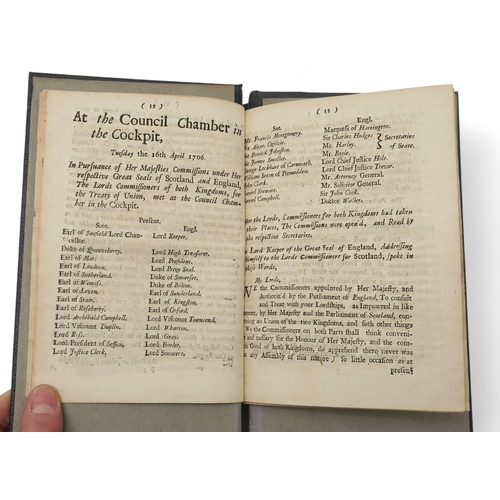 ( 12 )
At the Council Chamber in
the Cockpit,
Tuesday the 16th April 1706.
In Pursuance of Her Majesties Commissions under Her
respective Great Seals of Scotland and England,
The Lords Commissioners of both Kingdoms, for
the Treaty of Union, met at the Council Cham-
ber in the Cockpit.
Present.
Scot. Engl.
Earl of Seafield Lord Chan- Lord Keeper.
cellor.
Duke of Queensberry. Lord High Treasurer.
Earl of Mar. Lord President.
Earl of Loudoun. Lord Privy Seal.
Earl of Sutherland. Duke of Somerset.
Earl of Wemyss. Duke of Bolton.
Earl of Leven. Earl of Sunderland.
Earl of Stair. Earl of Kingston.
Earl of Roseberry. Earl of Orford.
Lord Archibald Campbell. Lord Viscount Townsend.
Lord Viscount Duplin. Lord Wharton.
Lord Ross. Lord Grey.
Lord President of Session. Lord Powlet.
Lord Justice Clerk. Lord Sommers.
( 13 )
Scot. Engl.
Mr. Francis Montgomery. Marquess of Hartington.
Sir Alexr. Ogilvie. Sir Charles Hedges Secretaries
Sir Patrick Johnston. Mr. Harley. of State.
Sir James Smollet. Mr. Boyle.
George Lockhart of Carnwath. Lord Chief Justice Holt.
William Seton of Lord Chief Justice Trevor.
John Clerk. Mr. Attorney General.
Stewart. Mr. Solicitor General.
Daniel Campbell. Sir John Cook.
Doctor Waller.
the Lords, Commissioners for both Kingdoms had taken
their Places, The Commissions were open'd, and Read by
the respective Secretaries.
Lord Keeper of the Great Seal of England, Addressing
himself to the Lords Commissioners for Scotland, spoke in
these Words,
My Lords,
WE the Commissioners appointed by Her Majesty, and
Authoriz'd by the Parliament of England, To consult
and Treat with your Lordships, as Impowered in like
manner, by Her Majesty and the Parliament of Scotland, con-
cerning an Union of the two Kingdoms, and such other things
We the Commissioners on both Parts shall think conveni-
and necessary for the Honour of Her Majesty, and the com-
Good of both Kingdoms, do apprehend there never was
in any Assembly of this nature) so little occasion as at
present